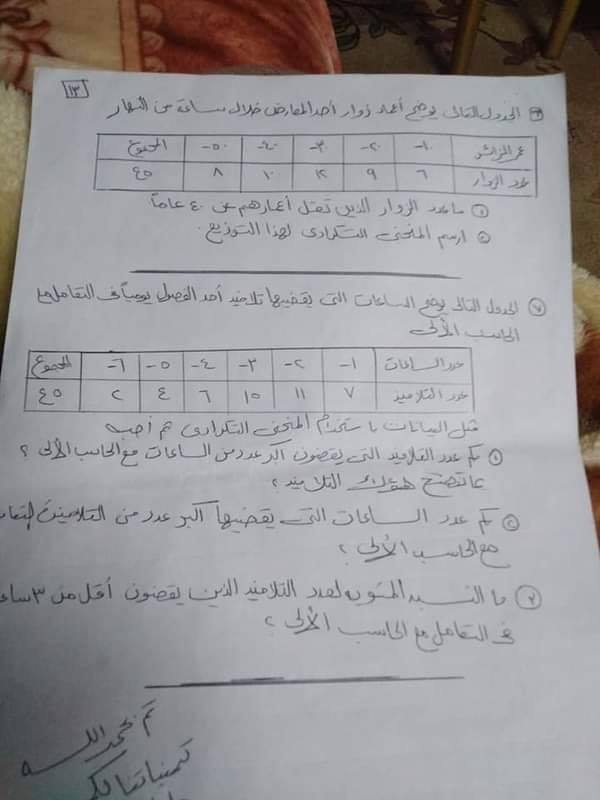 ١٣
٦ الجدول التالى يوضح أعمار زوار أحد المعارض خلال ساعة من النهار
عمر الزائر ١٠- ٢٠- ٣٠- ٤٠- ٥٠- المجموع
عدد الزوار ٦ ٩ ١٢ ١٠ ٨ ٤٥
١ ما عدد الزوار الذين تقل أعمارهم عن ٤٠ عاماً
٢ ارسم المنحنى التكرارى لهذا التوزيع.
٧ الجدول التالى يوضح الساعات التى يقضيها تلاميذ أحد الفصول يومياً فى التعامل مع
الحاسب الألى
عدد الساعات ١- ٢- ٣- ٤- ٥- ٦- المجموع
عدد التلاميذ ٧ ١١ ١٥ ٦ ٤ ٢ ٤٥
مثل البيانات باستخدام المنحنى التكرارى ثم أجب
١ كم عدد التلاميذ التى يقضون أكبر عدد من الساعات مع الحاسب الألى ؟
بما تنصح هؤلاء التلاميذ ؟
٢ كم عدد الساعات التى يقضيها أكبر عدد من التلاميذ
مع الحاسب الألى ؟
٣ ما النسبة المئوية لعدد التلاميذ الذين يقضون أقل من ٣
فى التعامل مع الحاسب الألى ؟
تم بحمد الله